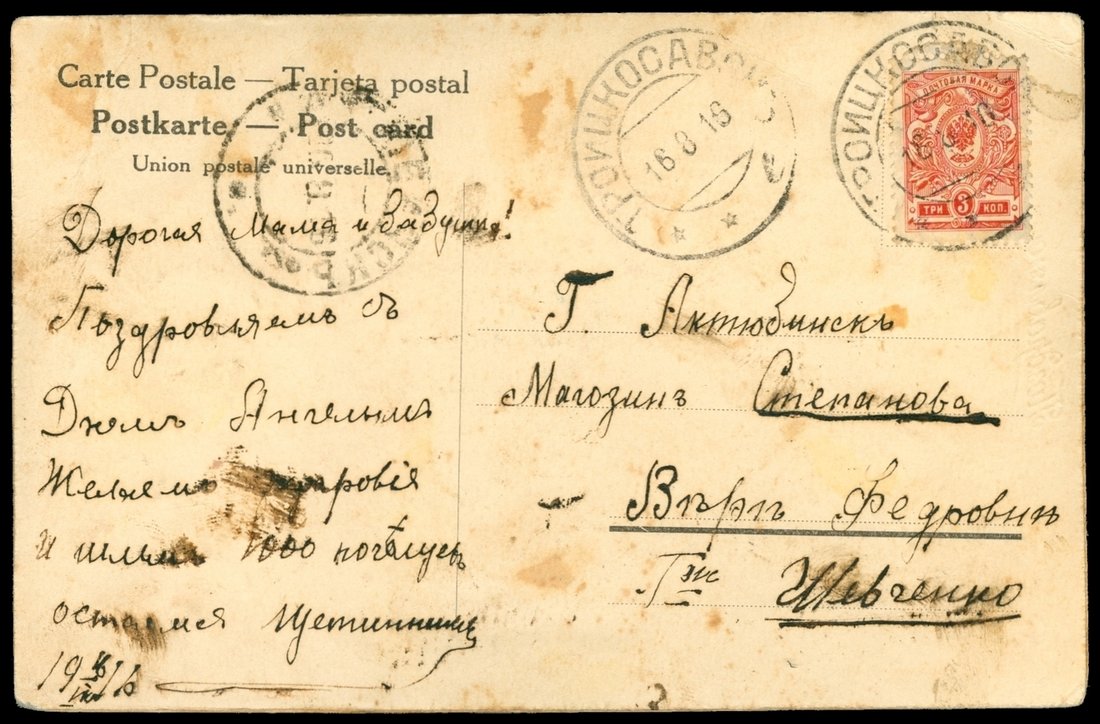 Carte Postale — Tarjeta postal
Postkarte — Post card
Union postale universelle.
ТРОИЦКОСАВСК
16 8 16
ТРОИЦКОСАВСК
ПОЧТОВАЯ МАРКА
ТРИ 3 КОП.
Дорогая Мама и бабушка!
Поздровляемъ съ
Днемъ Ангеломъ
Желаемъ
и шлемъ 1000 поцѣлуевъ
остаемся
Г. Актюбинскъ
Магозинъ Степанова
Вѣрѣ Федровнѣ
Г-жѣ Шевченко